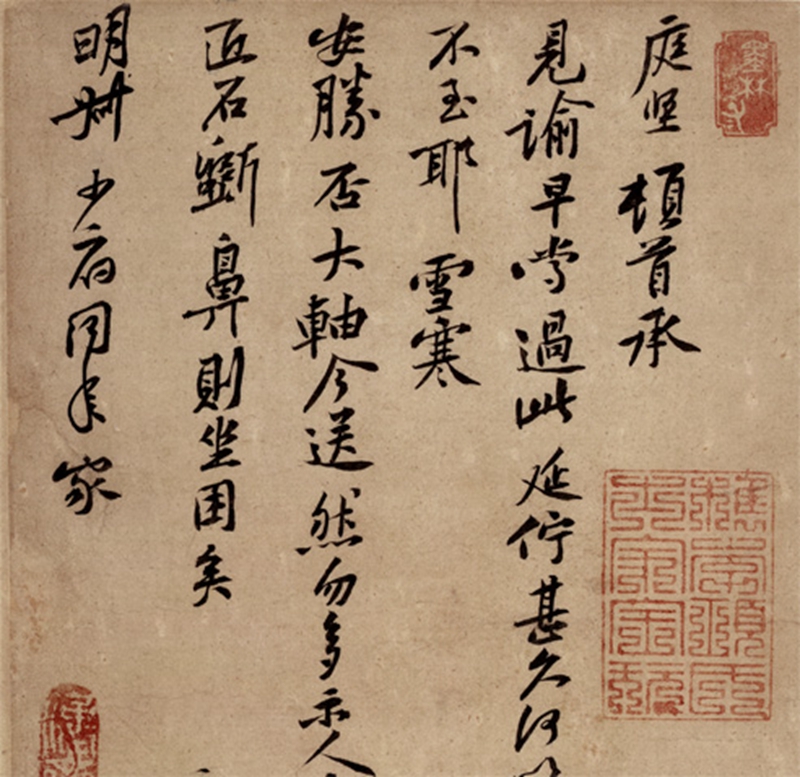 庭堅頓首承
見諭早嘗過此延佇甚久何
不至耶雪寒
安勝否大軸今送然勿多示人
匠石斵鼻則坐困矣
明叔少府同年家